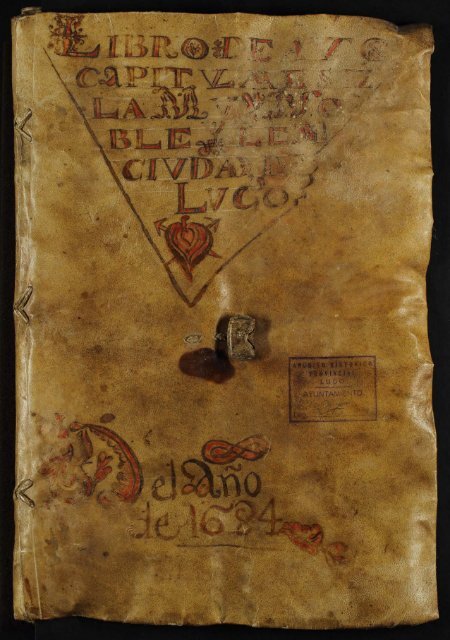 LIBRO DE AUC
CAPITULARES
LA MUY NO
BLE Y LEAL
CIUDAD
LUGO
ARCHIVO HISTÓRICO
PROVINCIAL
LUGO
AYUNTAMIENTO
Del Año
de 1684